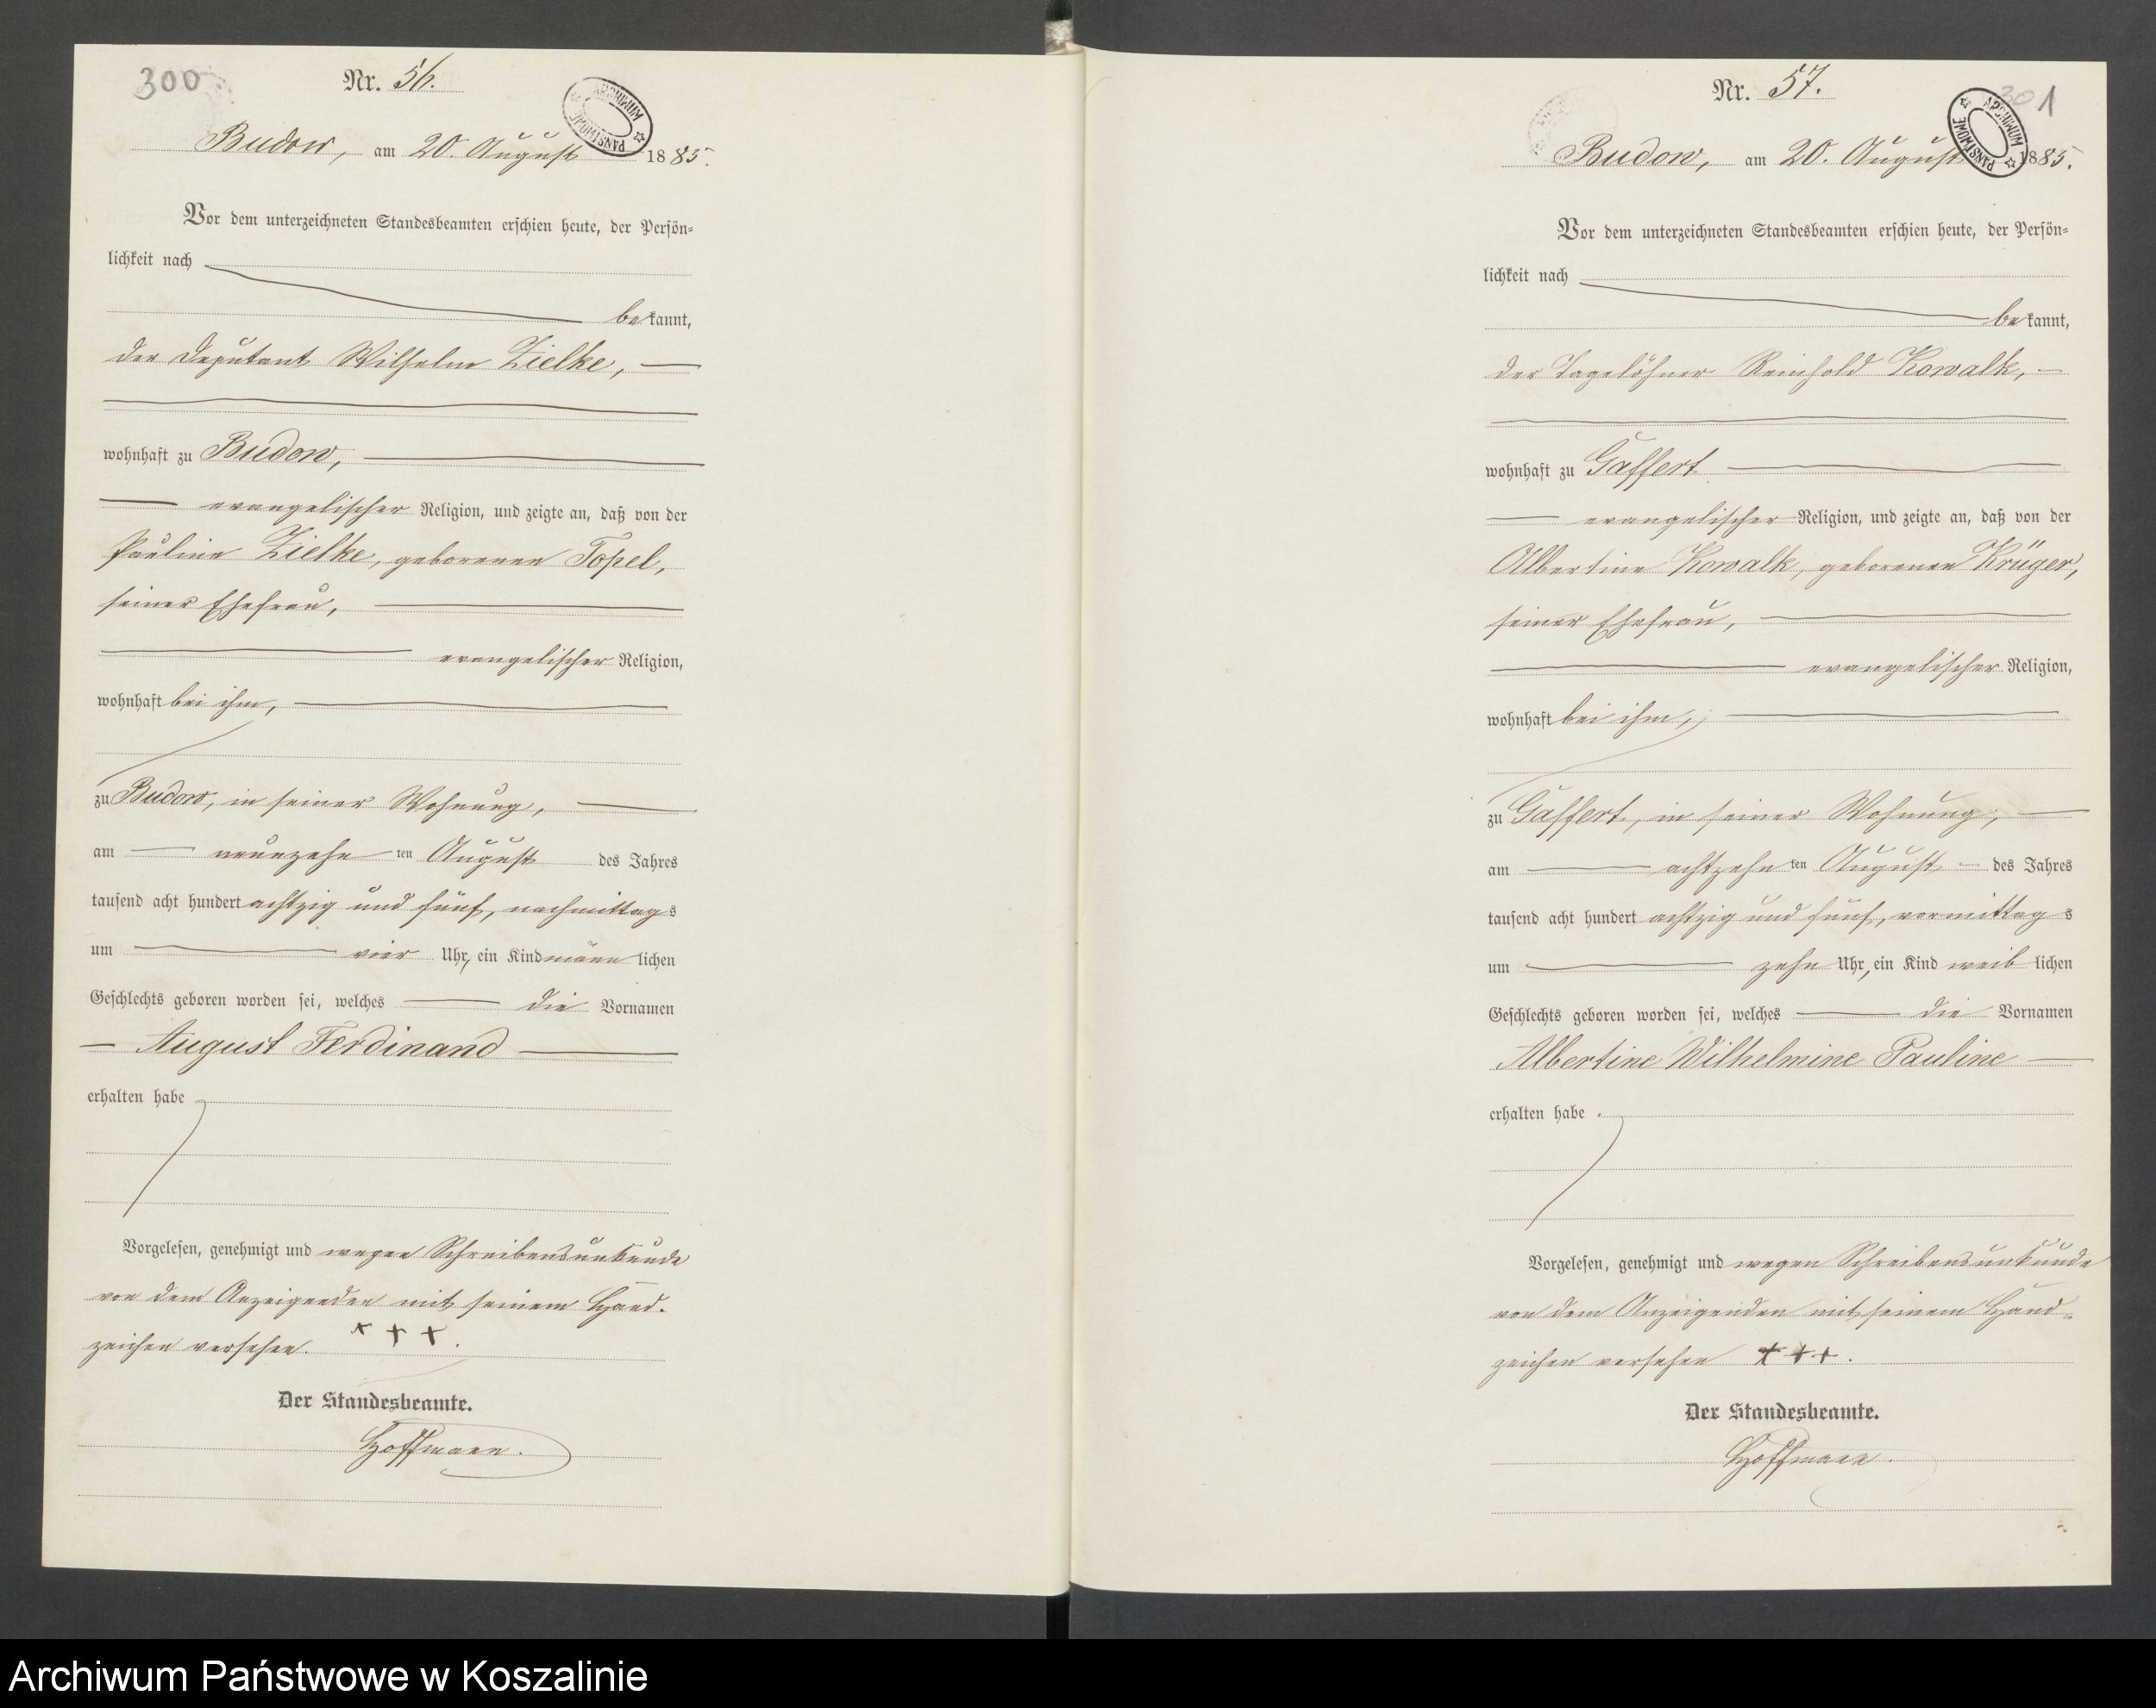 300
Nr. 56.
ARCHIWUM PAŃSTWOWE
Budow, am 20. August 1885.
Vor dem unterzeichneten Standesbeamten erschien heute, der Persön=
lichkeit nach
bekannt,
der Deputant Wilhelm Zielke,
wohnhaft zu Budow,
evangelischer Religion, und zeigte an, daß von der
Pauline Zielke, geborenen Topel,
seiner Ehefrau,
evangelischer Religion,
wohnhaft bei ihm,
zu Budow, in seiner Wohnung,
am neunzehn ten August des Jahres
tausend acht hundert achtzig und fünf, nachmittags
um vier Uhr, ein Kind männlichen
Geschlechts geboren worden sei, welches die Vornamen
August Ferdinand
erhalten habe
Vorgelesen, genehmigt und wegen Schreibensunkunde
von dem Anzeigenden mit seinem Hand-
zeichen versehen. + + +.
Der Standesbeamte.
Hoffmann.
301
Nr. 57.
ARCHIWUM PAŃSTWOWE
Budow, am 20. August 1885.
Vor dem unterzeichneten Standesbeamten erschien heute, der Persön=
lichkeit nach
bekannt,
der Tagelöhner Reinhold Kowalk,
wohnhaft zu Gaffert
evangelischer Religion, und zeigte an, daß von der
Albertine Kowalk, geborenen Krüger,
seiner Ehefrau,
evangelischer Religion,
wohnhaft bei ihm,
zu Gaffert, in seiner Wohnung,
am achtzehn ten August des Jahres
tausend acht hundert achtzig und fünf, vormittags
um zehn Uhr, ein Kind weiblichen
Geschlechts geboren worden sei, welches die Vornamen
Albertine Wilhelmine Pauline
erhalten habe.
Vorgelesen, genehmigt und wegen Schreibensunkunde
von dem Anzeigenden mit seinem Hand=
zeichen versehen +++.
Der Standesbeamte.
Hoffmann.
Archiwum Państwowe w Koszalinie